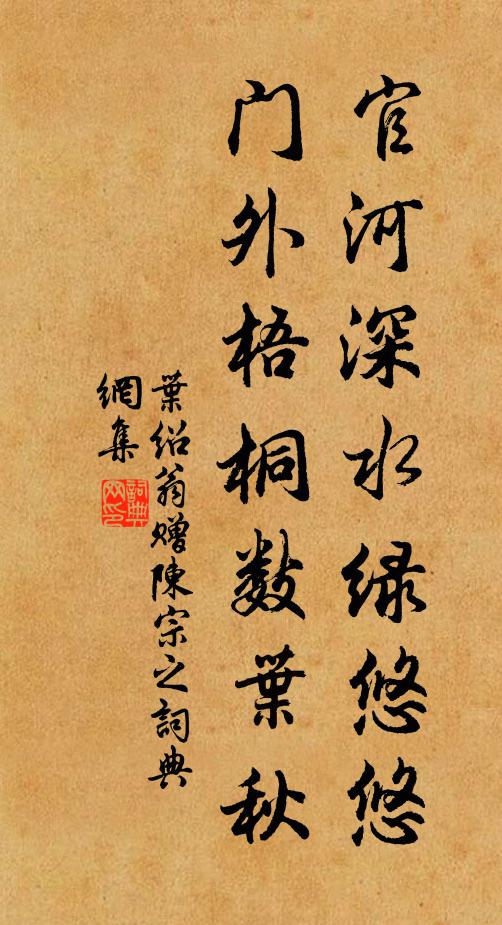 官河深水绿悠悠
门外梧桐数葉秋
葉绍翁赠陳宗之詞典
網集
詞典网印